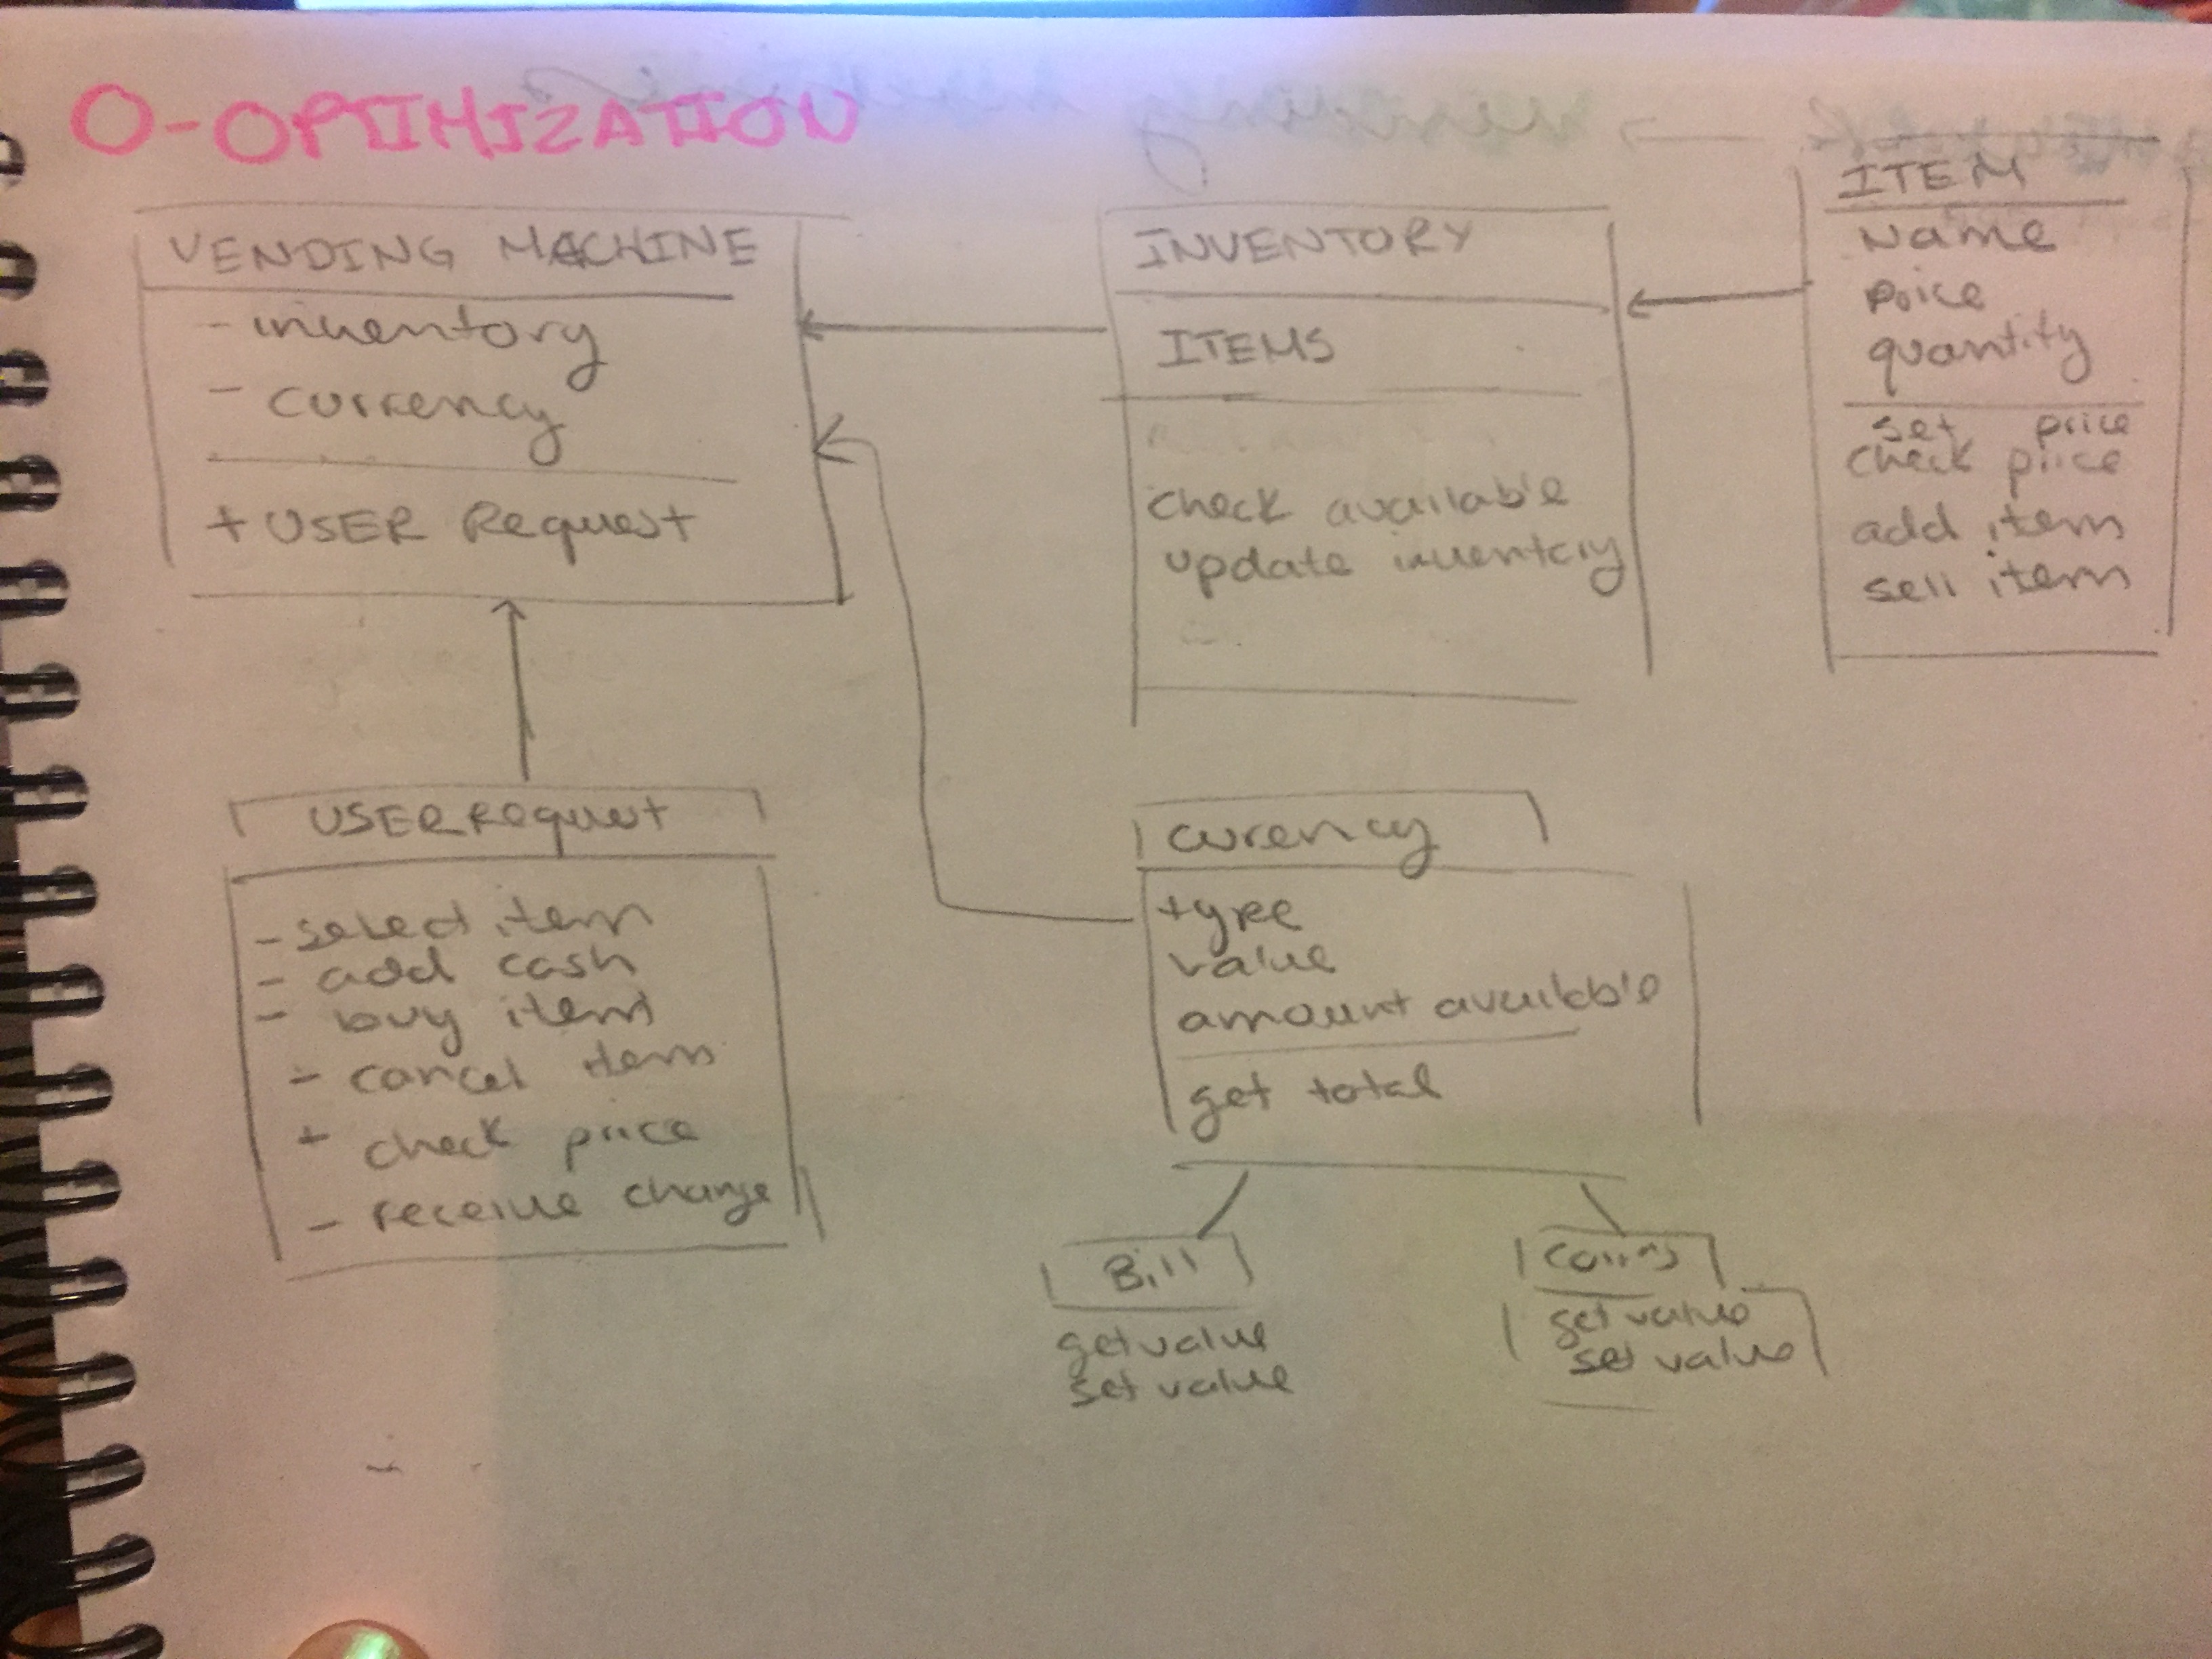 O-OPTIMIZATION
VENDING MACHINE
- inventory
- currency
+ USER Request
INVENTORY
ITEMS
check available
update inventory
ITEM
Name
price
quantity
set price
check price
add item
sell item
USER Request
- select item
- add cash
- buy item
- cancel item
+ check price
- receive change
curency
type
value
amount available
get total
Bill
get value
set value
Coins
get value
set value